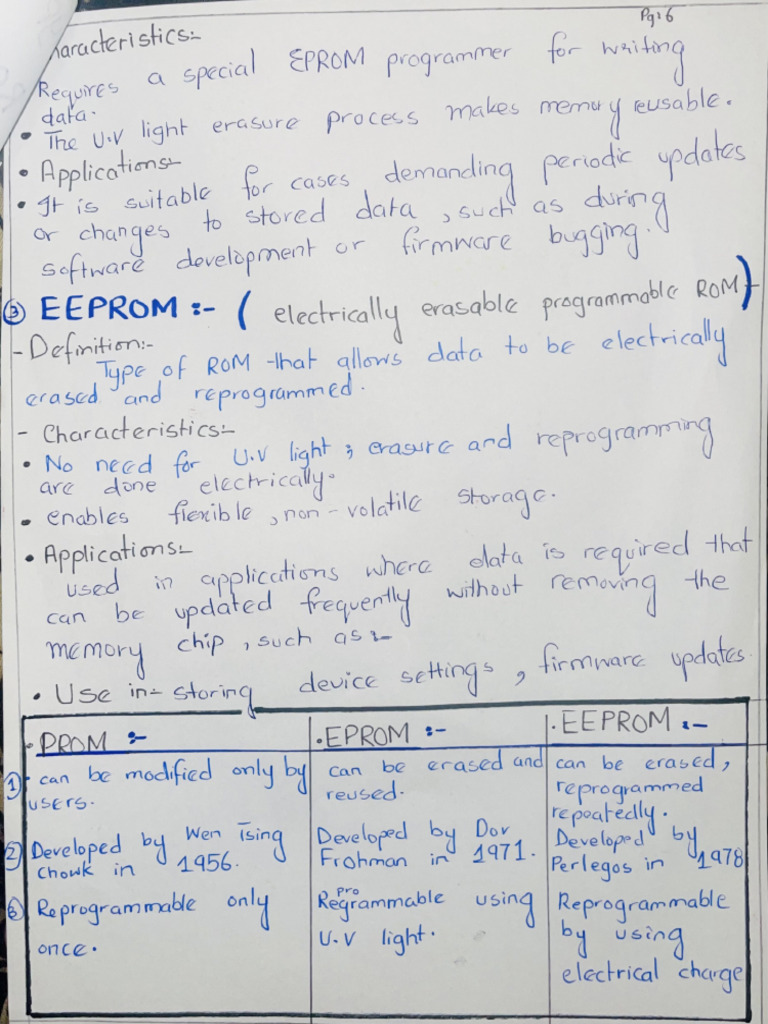 Pg:6
haracteristics:-
Requires a special EPROM programmer for writing
data.
• The U.V light erasure process makes memory reusable.
• Applications:-
• It is suitable for cases demanding periodic updates
or changes to stored data, such as during
software development or firmware bugging.
③ EEPROM :- ( electrically erasable programmable ROM)
- Definition:-
Type of ROM that allows data to be electrically
erased and reprogrammed.
- Characteristics:-
• No need for U.V light ; erasure and reprogramming
are done electrically.
• enables flexible, non-volatile storage.
• Applications:-
used in applications where data is required that
can be updated frequently without removing the
memory chip, such as :-
• Use in:- storing device settings, firmware updates.
• PROM :-
① can be modified only by
users.
② Developed by Wen Tsing
Chowk in 1956.
③ Reprogrammable only
once.
• EPROM :-
can be erased and
reused.
Developed by Dov
Frohman in 1971.
Reprogrammable using
U.V light.
• EEPROM :-
can be erased,
reprogrammed
repeatedly.
Developed by
Perlegos in 1978
Reprogrammable
by using
electrical charge